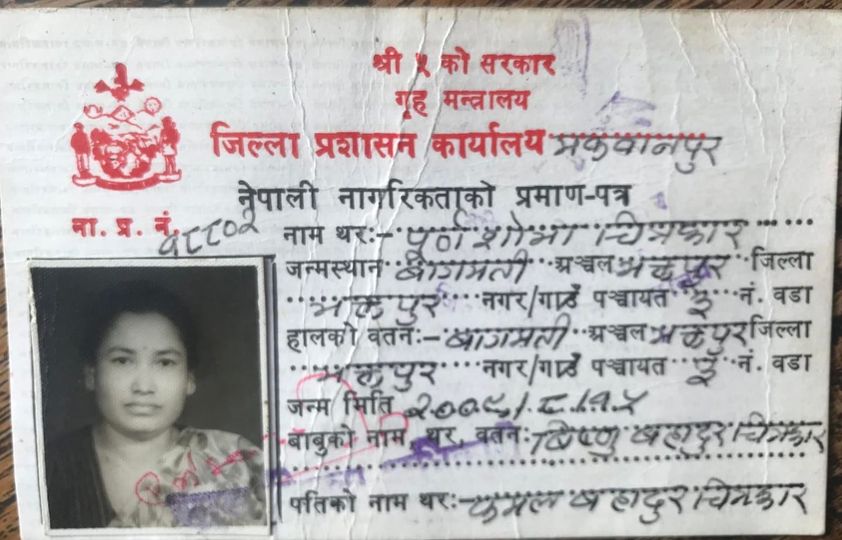 श्री ५ को सरकार
गृह मन्त्रालय
जिल्ला प्रशासन कार्यालय मकवानपुर
नेपाली नागरिकताको प्रमाण-पत्र
ना. प्र. नं. १८८०२
नाम थरः- पूर्ण शोभा चित्रकार
जन्मस्थान बागमती अञ्चल भक्तपुर जिल्ला
भक्तपुर नगर/गाउँ पञ्चायत ३ नं. वडा
हालको वतनः- बागमती अञ्चल भक्तपुर जिल्ला
भक्तपुर नगर/गाउँ पञ्चायत ३ नं. वडा
जन्म मिति २००९।८।१५
बाबुको नाम, थर, वतनः विष्णु बहादुर चित्रकार
पतिको नाम थरः- कमल बहादुर चित्रकार